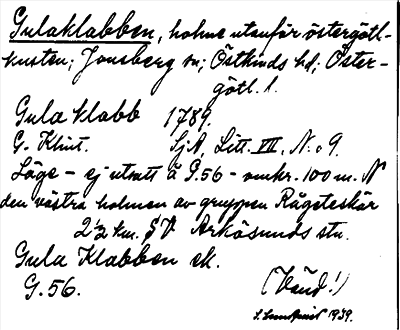 Gulaklabben, holme utanför östergötl-
kusten; Jonsberg sn; Östkinds hd; Öster-
götl. l.
Gula klabb 1789.
G. Klint. Sj.A. Litt. VII. N:o 9.
Läge - ej utsatt å G.56 - omkr. 100 m. N
den västra holmen av gruppen Rågeteskär
2½ km. SV Arkösunds stn.
Gula Klabben sk.
G.56. (Vänd!)
S. Lundquist 1939.